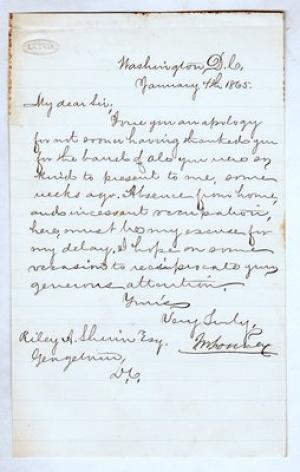 Washington, D.C.
January 7th 1865.
My dear Sir,
I owe you an apology
for not sooner having thanked you
for the barrel of ale you were so
kind to present to me, some
weeks ago. Absence from home,
and incessant occupation,
here, must be my excuse for
my delay. I hope on some
occasion to reciprocate your
generous attention.
Yours
Very Truly,
Riley A. Shinn Esq.
Georgetown,
D.C.